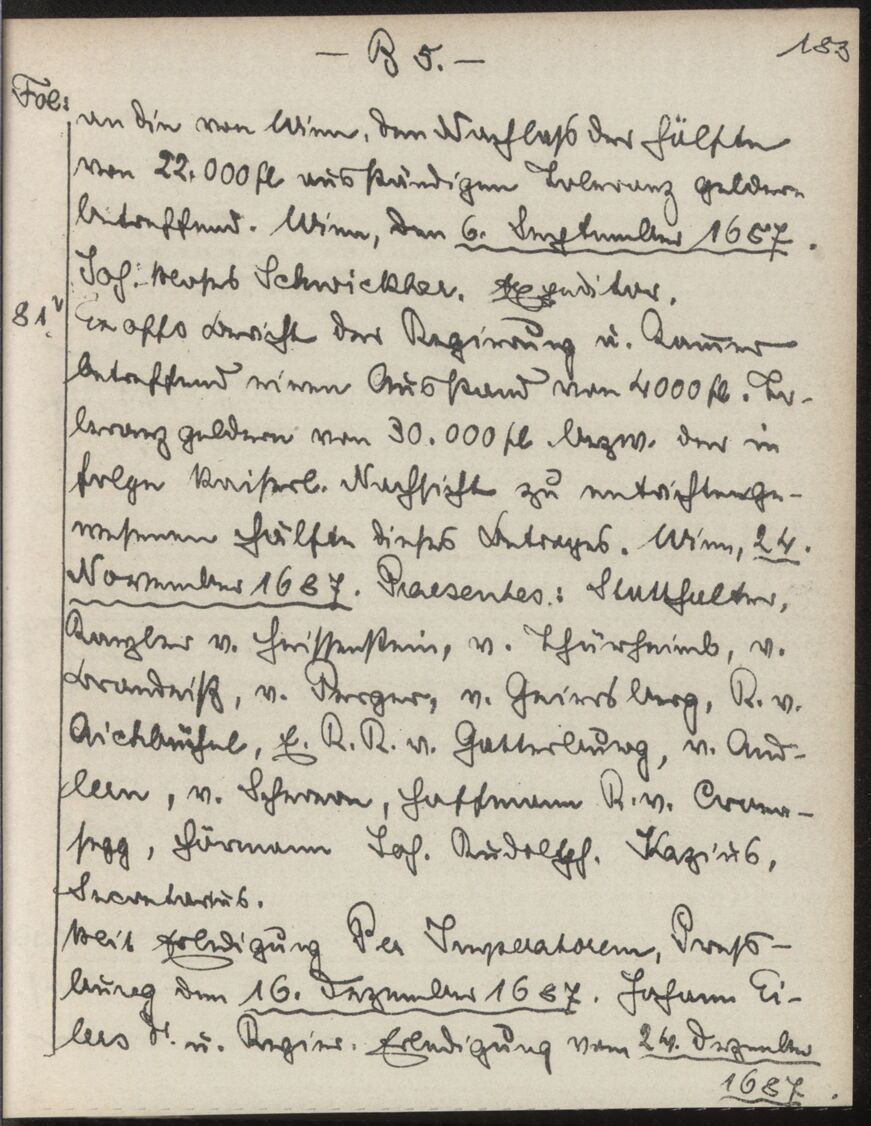 — B 5. — 183
Fol:
an die von Wien, den Nachlaß der Hälfte
von 22.000 fl ausständigen Toleranzgeldern
betreffend. Wien, den 6. September 1687.
Joh. Moses Schwickher. Expeditor.
81v Ex offo Bericht der Regierung u. Kammer
betreffend einen Ausstand von 4000 fl. To-
leranzgeldern von 30.000 fl. bezw. der in
folge Kaiserl. Nachsicht zu entrichten ge-
wesenen Hälfte dieses Betrages. Wien, 24.
November 1687. Praesentes: Statthalter,
Kanzler v. Heissenstein, v. Thürheimb, v.
Brandeiß, v. Perger, v. Geiersberg, K. v.
Aichbüchel, E. K. R. v. Gatterburg, v. And-
lern, v. Scherern, Haffmann K. v. Crona-
segg, Hörmann Joh. Rudolph. Kazius,
Secretarius.
Mit Erledigung Per Imperatorem, Press-
burg den 16. Dezember 1687. Johann Ei-
lers Dr. u. Regier. Erledigung vom 24. Dezember
1687.